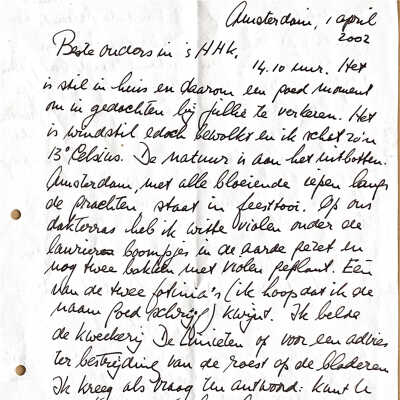 Amsterdam, 1 april
2002
Beste ouders in 's HHk,
14.10 uur. Het
is stil in huis en daarom een goed moment
om in gedachten bij jullie te verkeren. Het
is windstil edoch bewolkt en ik schat zo'n
13° Celsius. De natuur is aan het uitbotten.
Amsterdam, met alle bloeiende iepen langs
de grachten, staat in feesttooi. Op ons
dakterras heb ik witte violen onder de
laurier boompjes in de aarde gezet en
nog twee bakken met violen geplant. Eén
van de twee fotinia's (ik hoop dat ik de
naam goed schrijf) kwijnt. Ik belde
de kwekerij De voor een advies
ter bestrijding van de roest op de bladeren
Ik kreeg als vraag ten antwoord: kunt U